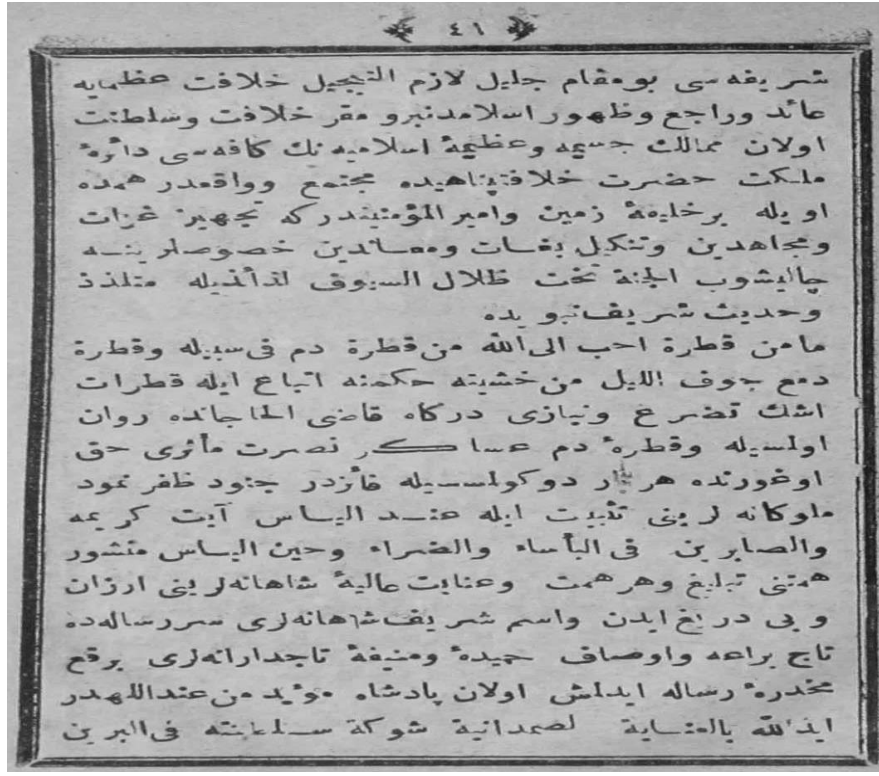 ٤١
شريفه سى بومقام جليل لازم التبجيل خلافت عظمايه
عائد وراجع وظهور اسلامدنبرو مقر خلافت وسلطنت
اولان ممالك جسيمه وعظيمهٔ اسلاميه نك كافه سى دائرهٔ
ملكت حضرت خلافتپناهيده مجتمع وواقعدر همده
اويله برخليفهٔ زمين واميرالمؤمنيندركه تجهيز غزات
ومجاهدين وتنكيل بغات ومعاندين خصوصلرينه
چاليشوب الجنة تحت ظلال السيوف لذائذيله متلذذ
وحديث شريف نبويده
مامن قطرة احب الى الله من قطرة دم فى سبيله وقطرة
دمع جوف الليل من خشيته حكمنه اتباع ايله قطرات
اشك تضرع ونيازى دركاه قاضى الحاجاتده روان
اولمسيله وقطرهٔ دم عساكر نصرت مأثرى حق
اوغورنده هر بار دوكولمسيله فائزدر جنود ظفر نمود
ملوكانه لرينى تثبيت ايله عند الياس آيت كريمه
والصابرين فى البأساء والضراء وحين الباس منشور
همتنى تبليغ وهر همت وعنايت عاليهٔ شاهانه لرينى ارزان
وبى دريغ ايدن واسم شريف شاهانه لرى سررساله ده
تاج براعه واوصاف حميدهٔ ومنيفهٔ تاجدارانه لرى برقع
مخدرهٔ رساله ايدلمش اولان پادشاه مؤيد من عنداللهدر
ايد الله بالعناية لصمدانية شوكة سلطنته فى البرين